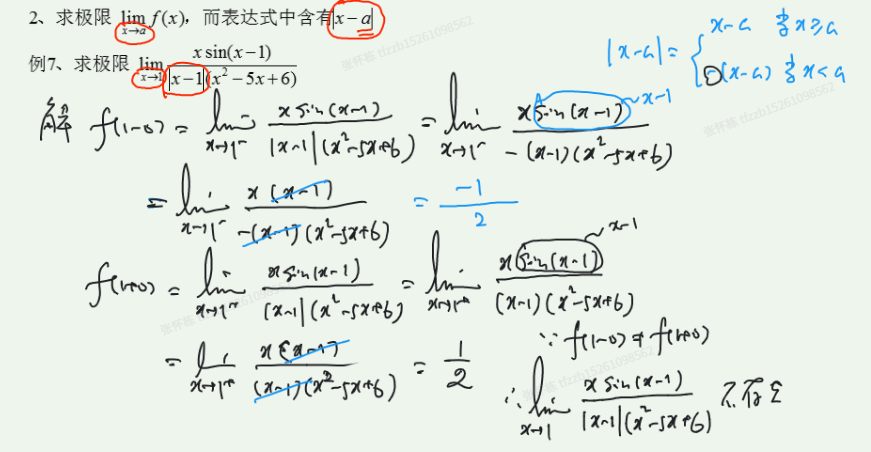 2、求极限 lim_{x→a} f(x)，而表达式中含有|x−a|
|x-a| = { x-a 当x≥a
-(x-a) 当x<a
例7、求极限 lim_{x→1} x sin(x−1) / |x−1|(x²−5x+6)
解 f(1-0) = lim_{x→1⁻} x sin(x-1) / |x-1|(x²-5x+6) = lim_{x→1⁻} x sin(x-1) / -(x-1)(x²-5x+6) ~x-1
= lim_{x→1⁻} x(x-1) / -(x-1)(x²-5x+6) = -1/2
f(1+0) = lim_{x→1⁺} x sin(x-1) / |x-1|(x²-5x+6) = lim_{x→1⁺} x sin(x-1) / (x-1)(x²-5x+6) ~x-1
= lim_{x→1⁺} x(x-1) / (x-1)(x²-5x+6) = 1/2
∵ f(1-0) ≠ f(1+0)
∴ lim_{x→1} x sin(x-1) / |x-1|(x²-5x+6) 不存在
张怀栋 tfzzh15261098562